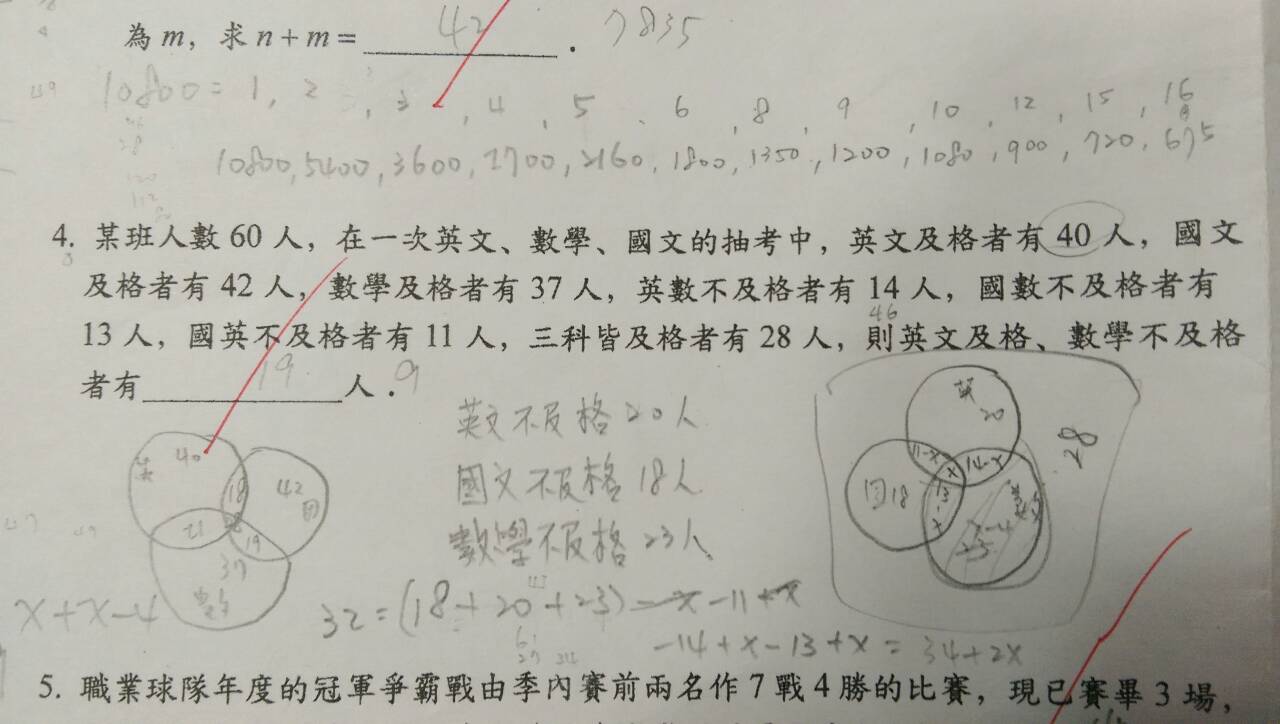 為 m，求 n + m = 42 . 7835
10800 = 1, 2, 3, 4, 5, 6, 8, 9, 10, 12, 15, 16
10800, 5400, 3600, 2700, 2160, 1800, 1350, 1200, 1080, 900, 720, 675
4. 某班人數 60 人，在一次英文、數學、國文的抽考中，英文及格者有 40 人，國文
及格者有 42 人，數學及格者有 37 人，英數不及格者有 14 人，國數不及格者有
13 人，國英不及格者有 11 人，三科皆及格者有 28 人，則英文及格、數學不及格
46
者有 19 人 . 9
英文不及格 20人
國文不及格 18人
數學不及格 23人
英 40 18 42 國 21 19 37 數
英 20 28 11-x x 14-x 國 18 13-x x-4 數
x+x-4
32 = (18+20+23) -x -11+x
-14+x-13+x = 34+2x
5. 職業球隊年度的冠軍爭霸戰由季內賽前兩名作 7 戰 4 勝的比賽，現已賽畢 3 場，